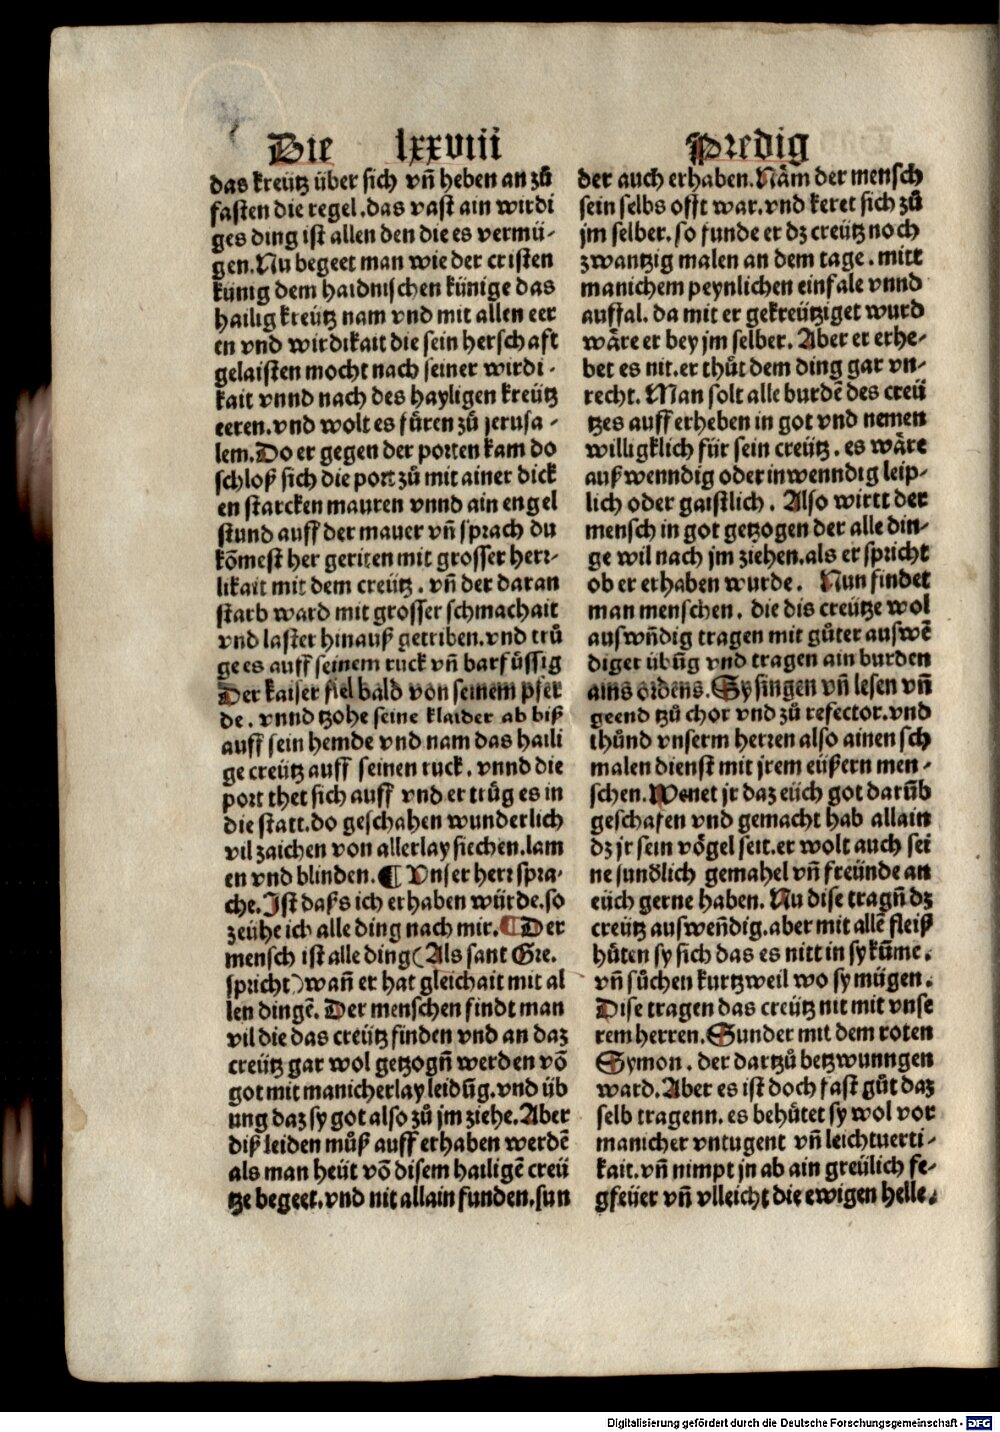 Die lxxviii Predig
das kreütz über sich vñ heben an zů
fasten die regel.das vast ain wirdi
ges ding ist allen den die es vermü-
gen.Nu begeet man wie der cristen
künig dem haidnischen künige das
hailig kreütz nam vnd mit allen eer
en vnd wirdikait die sein herschaft
gelaisten mocht nach seiner wirdi-
kait vnnd nach des hayligen kreütz
eeren.vnd wolt es fůren zů jerusa-
lem.Do er gegen der porten kam do
schloß sich die port zů mit ainer dick
en starcken mauren vnnd ain engel
stund auff der mauer vñ sprach du
kõmest her geriten mit grosser herr-
likait mit dem creütz. vñ der daran
starb ward mit grosser schmachait
vnd laster hinauß getriben.vnd trů
ge es auff seinem ruck vñ barfüssig
Der kaiser fiel bald von seinem pfer
de. vnnd tzohe seine klaider ab biß
auff sein hemde vnd nam das haili
ge creütz auff seinen ruck. vnnd die
port thet sich auff vnd er trůg es in
die statt.do geschahen wunderlich
vil zaichen von allerlay siechen.lam
en vnd blinden.¶ Vnser herr spra-
che.Ist daß s ich erhaben würde.so
zeühe ich alle ding nach mir.¶Der
mensch ist alle ding(Als sant Gre.
spricht)wañ er hat gleichait mit al
len dingẽ. Der menschen findt man
vil die das creütz finden vnd an daz
creütz gar wol getzogñ werden võ
got mit manicherlay leidũg.vnd üb
ung daz sy got also zů jm ziehe.Aber
diß leiden můß auff erhaben werdẽ
als man heüt võ disem hailigẽ creü
tze begeet.vnd nit allain funden.sun
der auch erhaben.Näm der mensch
sein selbs offt war.vnd keret sich zů
jm selber.so funde er dz creütz noch
zwantzig malen an dem tage. mitt
manichem peynlichen einfale vnnd
auffal. da mit er gekreütziget wurd
wäre er bey jm selber. Aber er erhe-
bet es nit.er thůt dem ding gar vn-
recht. Man solt alle burdẽ des creü
tzes auff erheben in got vnd nemen
willigklich für sein creütz. es wäre
außwenndig oder inwenndig leip-
lich oder gaistlich. Also wirtt der
mensch in got getzogen der alle din-
ge wil nach jm ziehen.als er spricht
ob er erhaben wurde. Nun findet
man menschen. die dis creütze wol
auswñdig tragen mit gůter auswẽ
diger übũg vnd tragen ain burden
ains ordens.Sy singen vñ lesen vñ
geend tzů chor vnd zů refector.vnd
thůnd vnserm herren also ainen sch
malen dienst mit jrem eüßern men-
schen.Wenet jr daz eüch got darũb
geschafen vnd gemacht hab allain
dz jr sein vögel seit.er wolt auch sei
ne sundlich gemahel vñ freünde an
eüch gerne haben. Nu dise tragñ dz
creütz auswendig.aber mit allẽ fleiß
hůten sy sich das es nitt in sy kũme.
vñ sůchen kurtzweil wo sy mügen.
Dise tragen das creütz nit mit vnse
rem herren.Sunder mit dem roten
Symon. der dartzů betzwunngen
ward.Aber es ist doch fast gůt daz
selb tragenn. es behůtet sy wol vor
manicher vntugent vñ leichtuerti-
kait.vñ nimpt jn ab ain greülich fe-
gfeüer vñ vlleicht die ewigen helle.
Digitalisierung gefördert durch die Deutsche Forschungsgemeinschaft - DFG